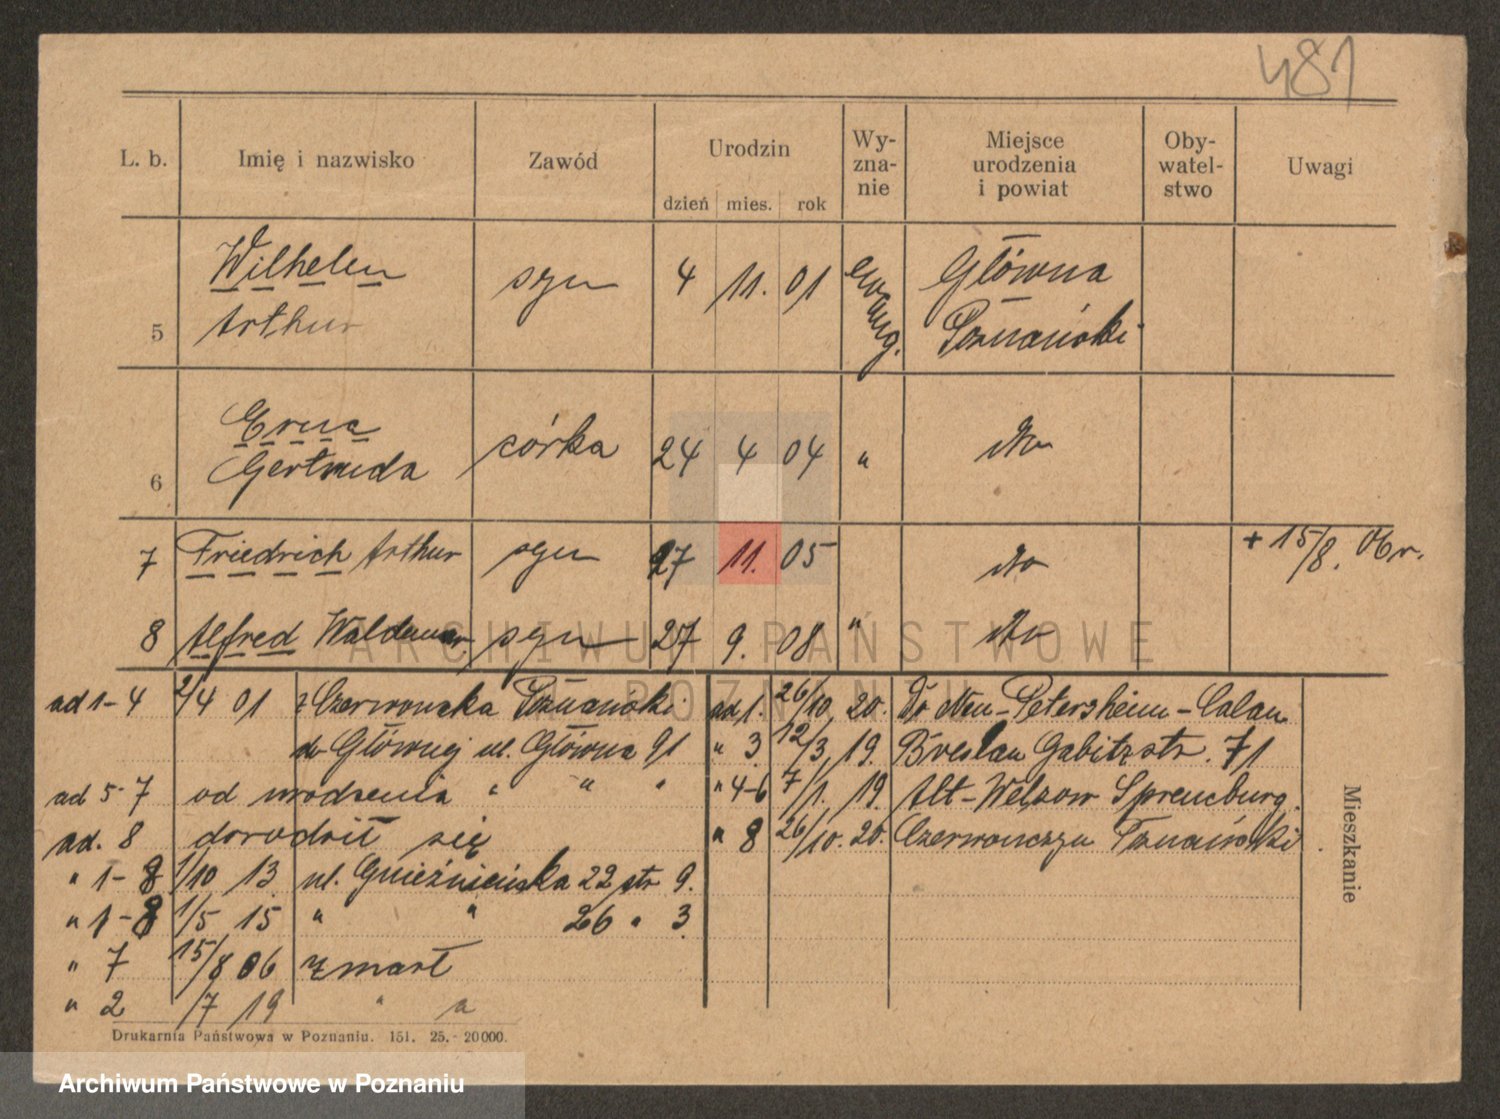 481
L. b. Imię i nazwisko Zawód Urodzin dzień mies. rok Wy-zna-nie Miejsce urodzenia i powiat Oby-watel-stwo Uwagi
5 Wilhelm Arthur syn 4 11. 01 ewang. Główna Poznański
6 Erna Gertruda córka 24 4 04 " dto
7 Friedrich Arthur syn 27 11. 05 dto + 15/8. 06 r.
8 Alfred Waldemar syn 27 9. 08 " dto
ad 1-4 2/4 01 z Czerwonaka Poznański
do Głównej ul. Główna 91
ad 5-7 od urodzenia " " "
ad. 8 dorodził się
" 1-8 1/10 13 ul. Gnieźnieńska 22 str 9.
" 1-8 1/5 15 " " 26 " 3.
" 7 15/8 06 zmarł
" 2 /7 19 " a
ad 1. 26/10. 20. Do Neu-Petersheim-Calau
" 3 12/3, 19. Breslau Gabitzstr. 71
" 4-6 7/1. 19. Alt-Welzow Spremburg.
" 8 26/10. 20. Poznański
Mieszkanie
Drukarnia Państwowa w Poznaniu. 151. 25.- 20000.
ARCHIWUM PAŃSTWOWE
W POZNANIU
Archiwum Państwowe w Poznaniu